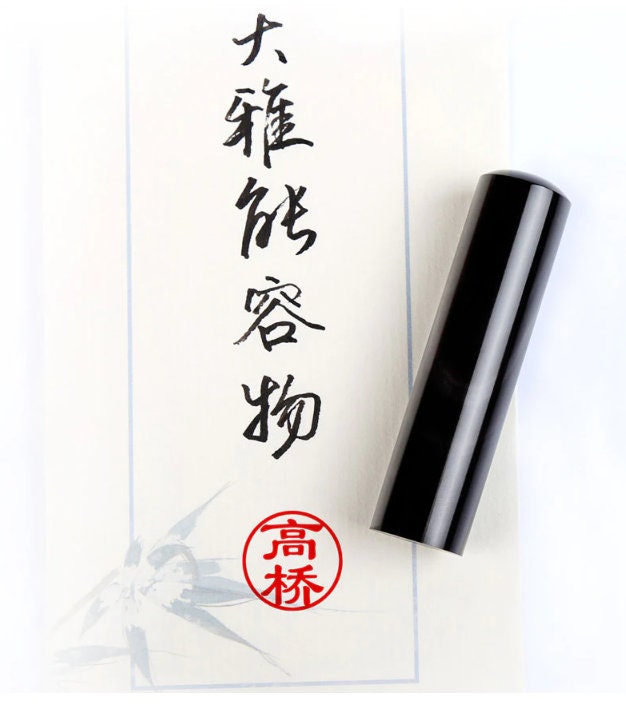 大雅能容物
高桥